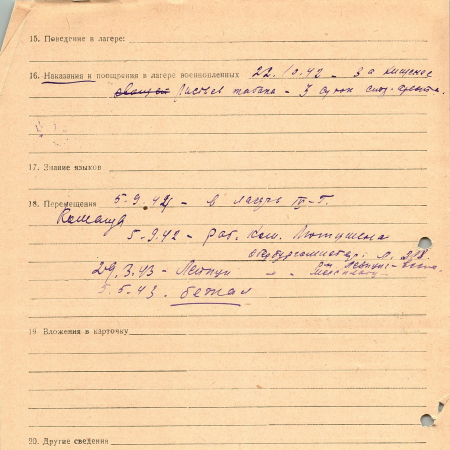 15. Поведение в лагере:
16. Наказания и поощрения в лагере военнопленных 22.10.42 - За хищение
листьев табака - 3 суток ареста.
17. Знание языков
18. Перемещения 5.9.42 - в лагерь IV-Г.
Команда
5.9.42 - раб. ком.
29.3.43 - Лейпциг " "
5.5.43. бежал
19 Вложения в карточку
20. Другие сведения